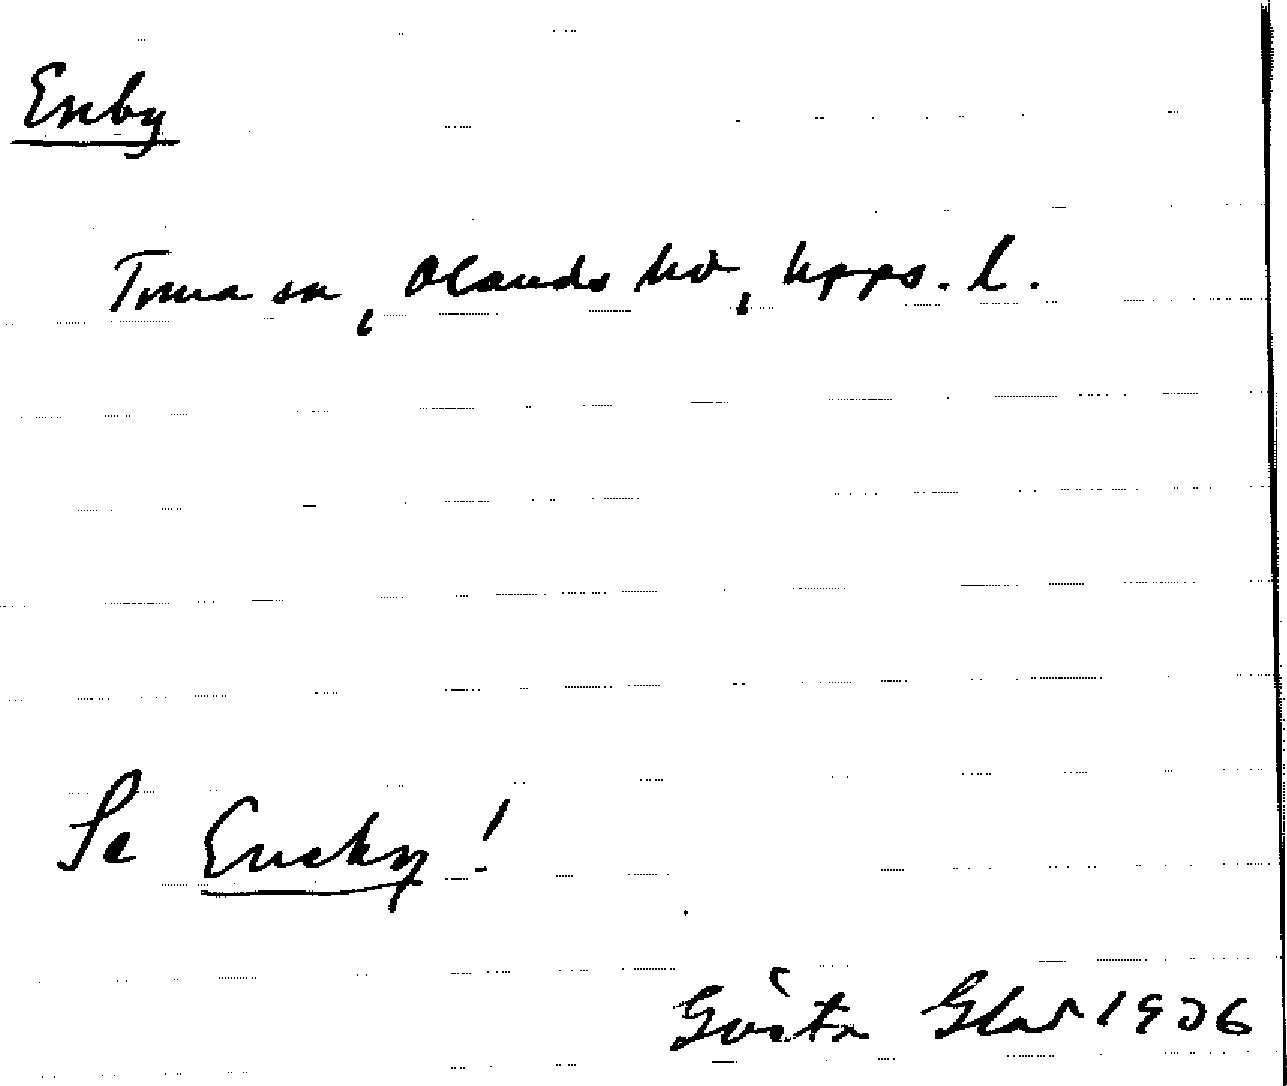 Enby
Tuna sn, Olands hd, Upps. l.
Se Eneby!
Gösta Glas 1926